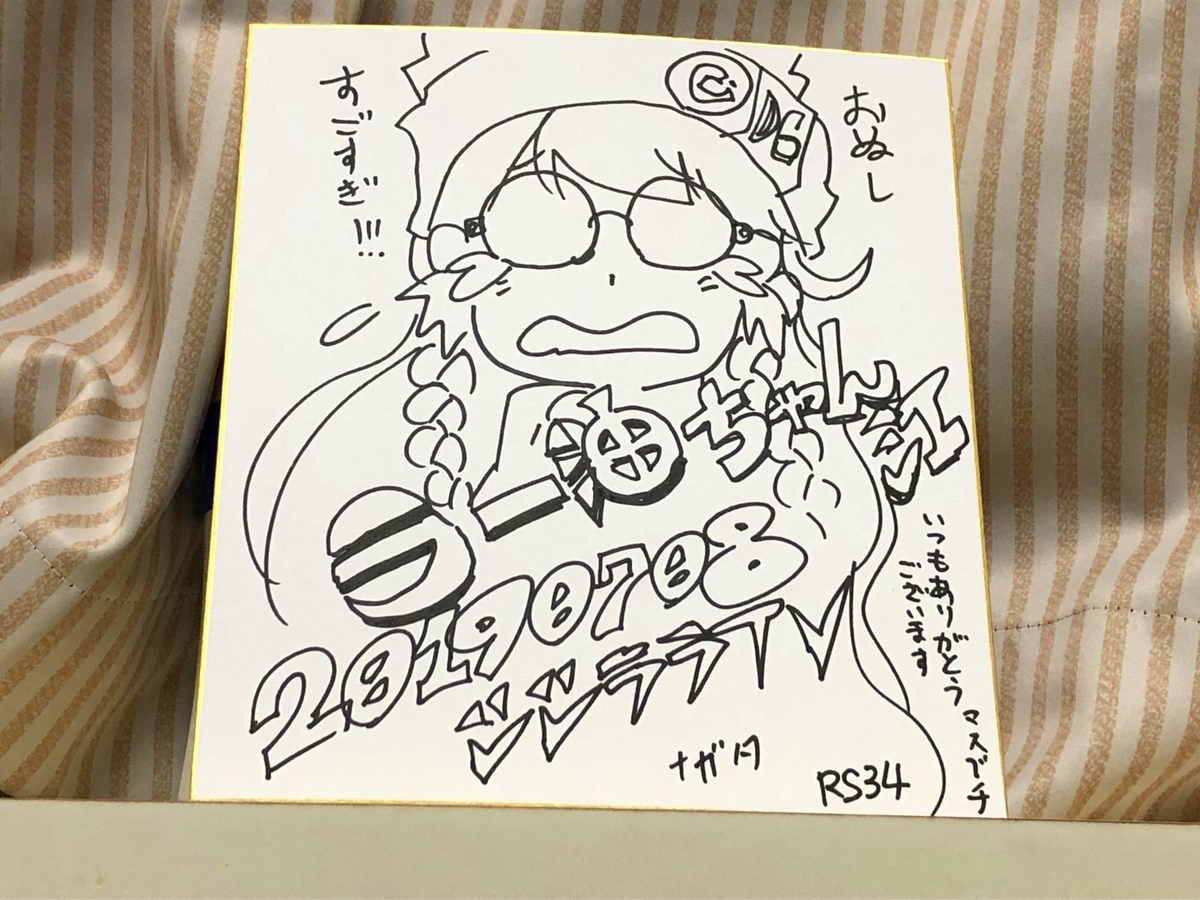 おぬし
すごすぎ!!!
C
D6
ちゃん
20190708
ジジララTV
いつもありがとう
ございます
マスブチ
ナガタ
RS34